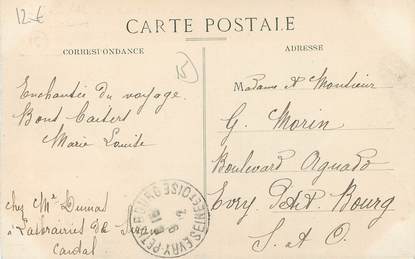 12.€
CARTE POSTALE
CORRESPONDANCE
ADRESSE
Enchantée du voyage.
Bons baisers
Marie Louise
chez Mr Dumas
à
Cardal
Madame et Monsieur
G. Morin
Boulevard Aguado
Evry Petit Bourg
S. et O.
EVRY-PETIT-BOURG
SEINE ET OISE